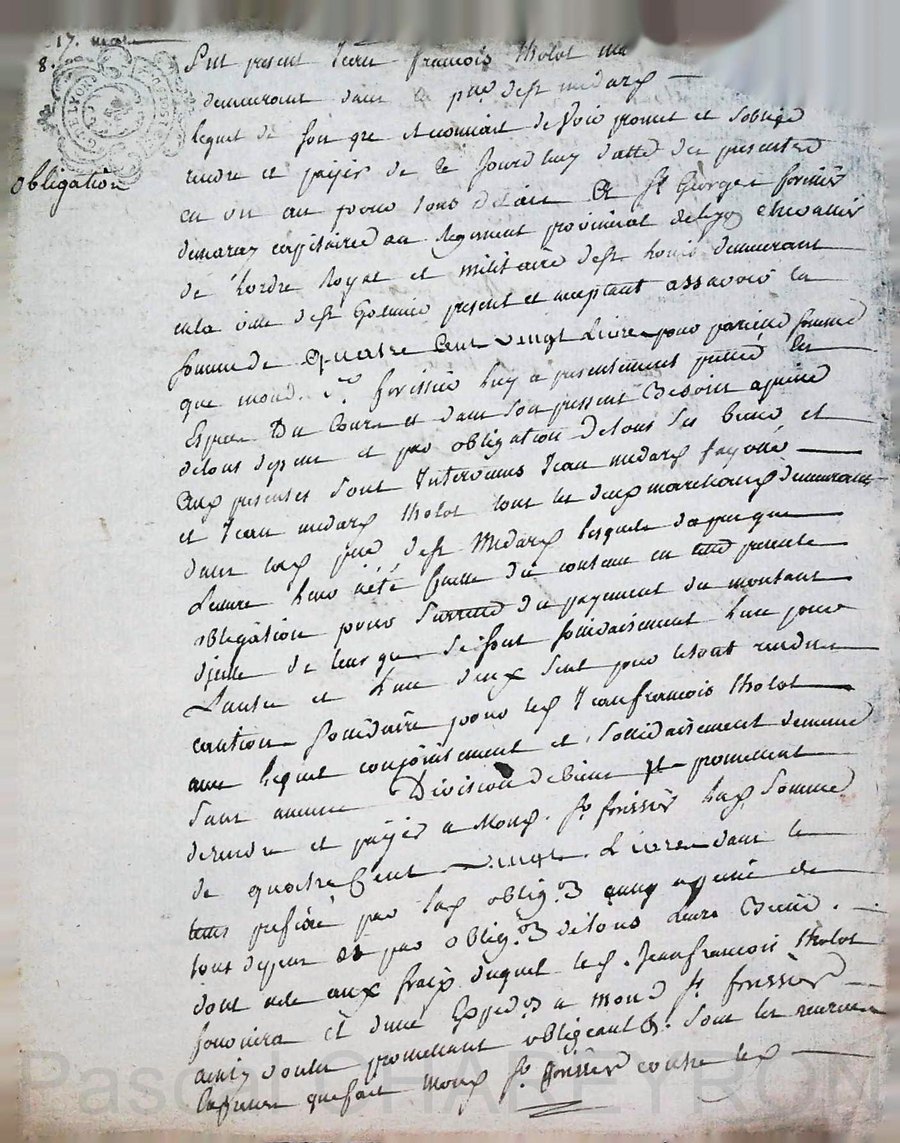 17. mars
8.
Obligation
fut present Jean francois tholot
demeurant dans la psse de st medard
lequel de son gre et reconnait devoir promet et soblige
rendre et payer de ce jourdhuy datte des presentes
en un an pour tous delais a sr George forissier
capitaine au regiment provincial de lyon chevallier
de l'hordre Royal et militaire de st Louis demeurant
en la ville de st Galmier present et aceptant assavoir la
somme de quatre cent vingt Livres pour pareille somme
que mond. sr forissier luy a presentement pretté en
Espece Du Cours et dans son pressent Besoin a peine
de tous depens et par obligation de tous ses biens et
aux presentes sont Intervenus Jean medard fayolle
et Jean medard tholot tous les deux marchands demeurants
dans lad. psse de st Medard lesquels dapres que
Lecture leur a été faitte du contenu en presente
obligation pour du payement du montant
dicelle de leur gre se sont solidairement l'un pour
L'autre et l'un deux seul pour le tout rendus
caution solidaire pour led Jean francois tholot
avec lequel conjointement et sollidairement
sans aucune Division de biens promettent
de rendre et payer a Mond. sr forissier lad. somme
de quatre Cent vingt Livres dans le
prefixé par lad oblig.on a peine de
tous depens et par oblig.on de tous Leurs Biens.
dont acte aux fraix duquel led. Jean francois tholot
fournira Exped.on a mond sr forissier
ainsy voulu promettant obligeant &. sous les
que fait Mond sr forissier contre led
Pascal CHAREYRON